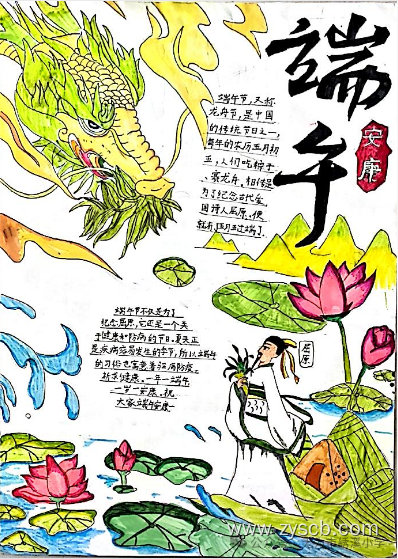 端午
安康
端午节，又称
龙舟节，是中国
的传统节日之一，
每年的农历五月初
五，人们吃粽子
、赛龙舟。相传是
为了纪念古代爱
国诗人屈原，便
就有
端午节不仅是为了
纪念屈原，它还是一个关
于健康和防病的节日，夏天正
是疾病容易发生的季节，所以端午
的习俗也寓意着祛病防疫。
祈求健康，一年一端午
一岁一安康，祝
大家端午安康
屈原
www.zyscb.com